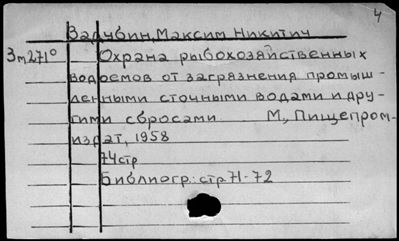 4
Зарубин, Максим Никитич
Зт271° Охрана рыбохозяйственных
водоемов от загрязнения промыш-
ленными сточными водами и дру-
гими сбросами М., Пищепром-
издат, 1958
74стр
Библиогр: стр 71-72